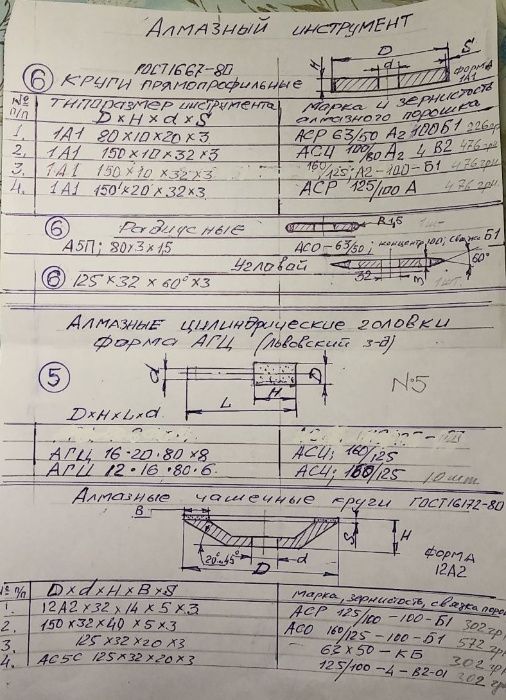 Алмазный инструмент
ГОСТ 16167-80
6 Круги прямопрофильные
H D d S форма 1А1
№ п/п Типоразмер инструмента D×H×d×S Марка и зернистость алмазного порошка
1. 1А1 80×10×20×3 АСР 63/50 А2 100Б1 226гр
2. 1А1 150×10×32×3 АСЦ 100/80 А2 4 В2 476гр
3. 1А1 150×10×32×3 160/125; А2-100-Б1 476грн
4. 1А1 150×20×32×3 АСР 125/100 А 476грн
6 Радиусные R1,5 1шт
А5П; 80×3×1,5 АСО-63/50; концентр 100; связка Б1
Угловой
6 125×32×60°×3 32 3 60° 1шт.
Алмазные цилиндрические головки
форма АГЦ (Львовский з-д)
5 d L H D №5
D×H×L×d
АГЦ 16·20·80×8 АСЦ; 160/125
АГЦ 12·16·80·6. АСЧ; 160/125 10шт
Алмазные чашечные круги ГОСТ 16172-80
B S H форма 12А2
20°÷45° d
D
№ п/п D×d×H×B×S Марка, зернистость, связка
1. 12А2×32×14×5×3 АСР 125/100-100-Б1 302гр
2. 150×32×40×5×3 АСО 160/125-100-Б1 572гр
3. 125×32×20×3 63×50-КБ 302гр
4. АС5С 125×32×20×3 125/100-4-В2-01 302гр